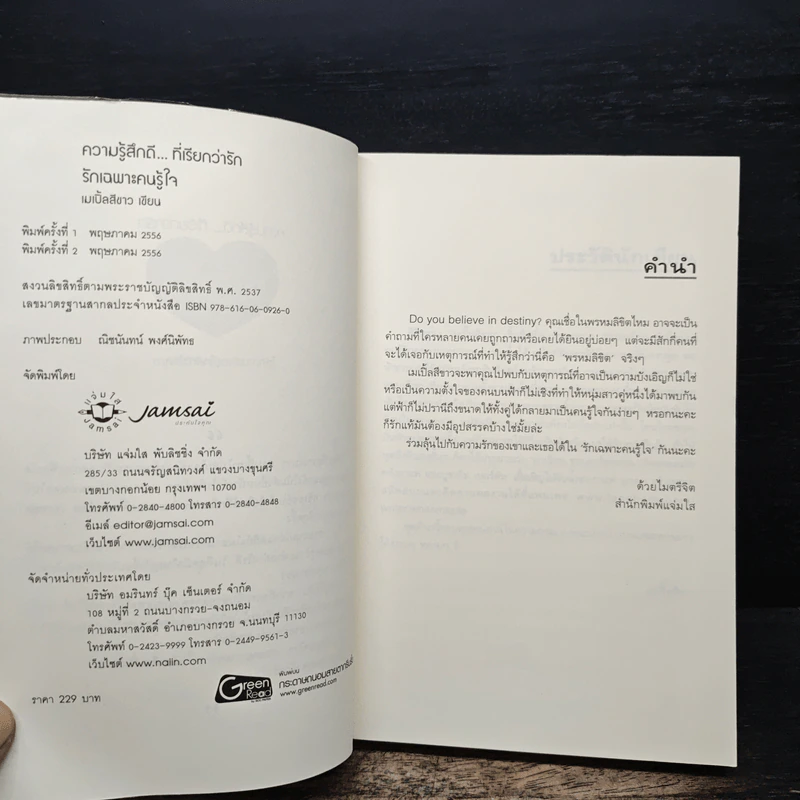 ความรู้สึกดี... ที่เรียกว่ารัก
รักเฉพาะคนรู้ใจ
เมเปิ้ลสีขาว เขียน
พิมพ์ครั้งที่ 1 พฤษภาคม 2556
พิมพ์ครั้งที่ 2 พฤษภาคม 2556
สงวนลิขสิทธิ์ตามพระราชบัญญัติลิขสิทธิ์ พ.ศ. 2537
เลขมาตรฐานสากลประจำหนังสือ ISBN 978-616-06-0926-0
ภาพประกอบ ณิชนันทน์ พงศ์นิพัทธ
จัดพิมพ์โดย
แจ่มใส
Jamsai
Jamsai
บริษัท แจ่มใส พับลิชชิ่ง จำกัด
285/33 ถนนจรัญสนิทวงศ์ แขวงบางขุนศรี
เขตบางกอกน้อย กรุงเทพฯ 10700
โทรศัพท์ 0-2840-4800 โทรสาร 0-2840-4848
อีเมล์ editor@jamsai.com
เว็บไซต์ www.jamsai.com
จัดจำหน่ายทั่วประเทศโดย
บริษัท อมรินทร์ บุ๊ค เซ็นเตอร์ จำกัด
108 หมู่ที่ 2 ถนนบางกรวย-จงถนอม
ตำบลมหาสวัสดิ์ อำเภอบางกรวย จ.นนทบุรี 11130
โทรศัพท์ 0-2423-9999 โทรสาร 0-2449-9561-3
เว็บไซต์ www.naiin.com
ราคา 229 บาท
Green
Read
พิมพ์บน
กระดาษถนอมสายตากรีนรี้ด
www.greenread.com
คำนำ
Do you believe in destiny? คุณเชื่อในพรหมลิขิตไหม อาจจะเป็น
คำถามที่ใครหลายคนเคยถูกถามหรือเคยได้ยินอยู่บ่อยๆ แต่จะมีสักกี่คนที่
จะได้เจอกับเหตุการณ์ที่ทำให้รู้สึกว่านี่คือ "พรหมลิขิต" จริงๆ
เมเปิ้ลสีขาวจะพาคุณไปพบกับเหตุการณ์ที่อาจเป็นความบังเอิญก็ไม่ใช่
หรือเป็นความตั้งใจของคนบนฟ้าก็ไม่เชิงที่ทำให้หนุ่มสาวคู่หนึ่งได้มาพบกัน
แต่ฟ้าก็ไม่ปรานีถึงขนาดให้ทั้งคู่ได้กลายมาเป็นคนรู้ใจกันง่ายๆ หรอกนะคะ
ก็รักแท้มันต้องมีอุปสรรคบ้างใช่มั้ยล่ะ
ร่วมลุ้นไปกับความรักของเขาและเธอได้ใน 'รักเฉพาะคนรู้ใจ' กันนะคะ
ด้วยไมตรีจิต
สำนักพิมพ์แจ่มใส